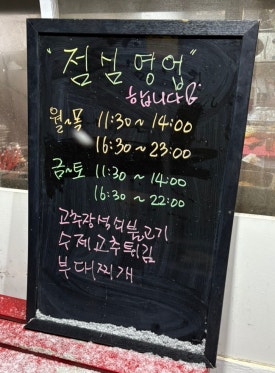 "점심영업"
합니다G.
월~목 11:30 ~ 14:00
16:30 ~ 23:00
금~토 11:30 ~ 14:00
16:30 ~ 22:00
고추장석쇠불고기
수제고추튀김
부대찌개